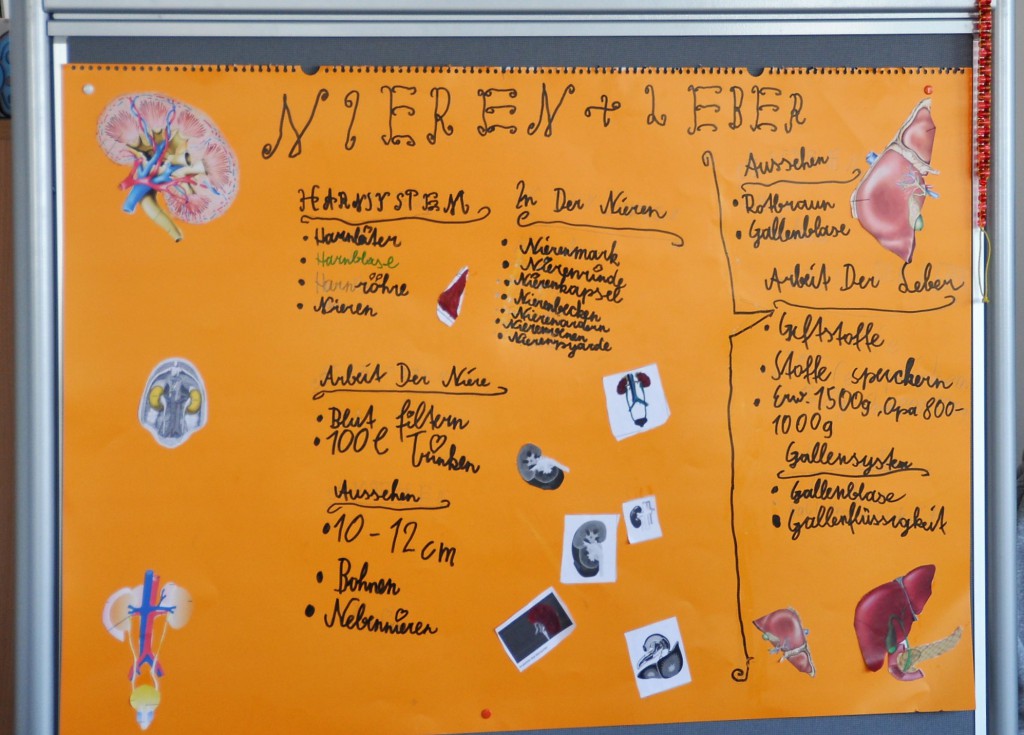 NIEREN + LEBER
HARNSYSTEM
Harnleiter
Harnblase
Harnröhre
Nieren
In Der Nieren
Nierenmark
Nierenrinde
Nierenkapsel
Nierenbecken
Arbeit Der Niere
Blut filtern
100 l Trinken
Aussehen
10-12 cm
Bohnen
Nebennieren
Aussehen
Rotbraun
Gallenblase
Arbeit Der Leber
Giftstoffe
Stoffe speichern
Erw. 1500g, Opa 800-
1000g
Gallensystem
Gallenblase
Gallenflüssigkeit